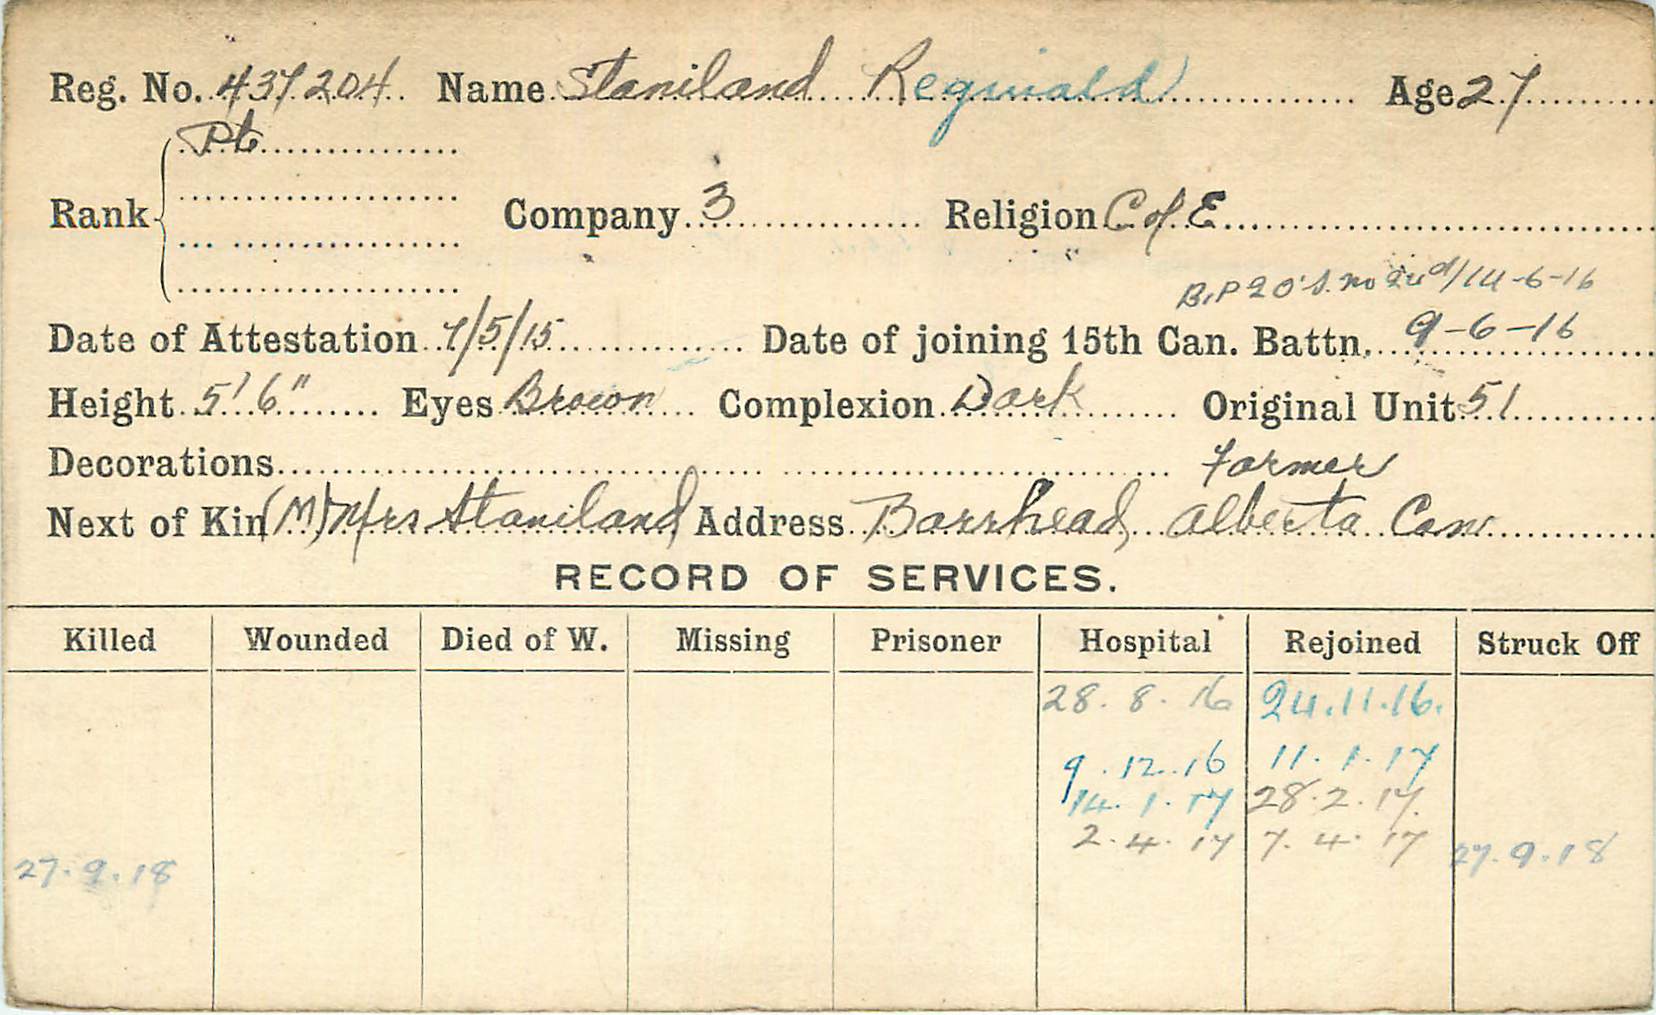 Reg. No. 437204 Name Staniland Reginald Age 27
Pte
Rank Company 3 Religion C of E
14-6-16
Date of Attestation 7/5/15 Date of joining 15th Can. Battn. 9-6-16
Height 5' 6" Eyes Brown Complexion Dark Original Unit 51
Decorations Farmer
Next of Kin (M) Mrs Staniland Address Barrhead, Alberta Can
RECORD OF SERVICES.
Killed Wounded Died of W. Missing Prisoner Hospital Rejoined Struck Off
28. 8. 16 24.11.16.
9. 12. 16 11. 1. 17
14. 1. 17 28. 2. 17.
2. 4. 17 7. 4. 17
27. 9. 18 27. 9. 18